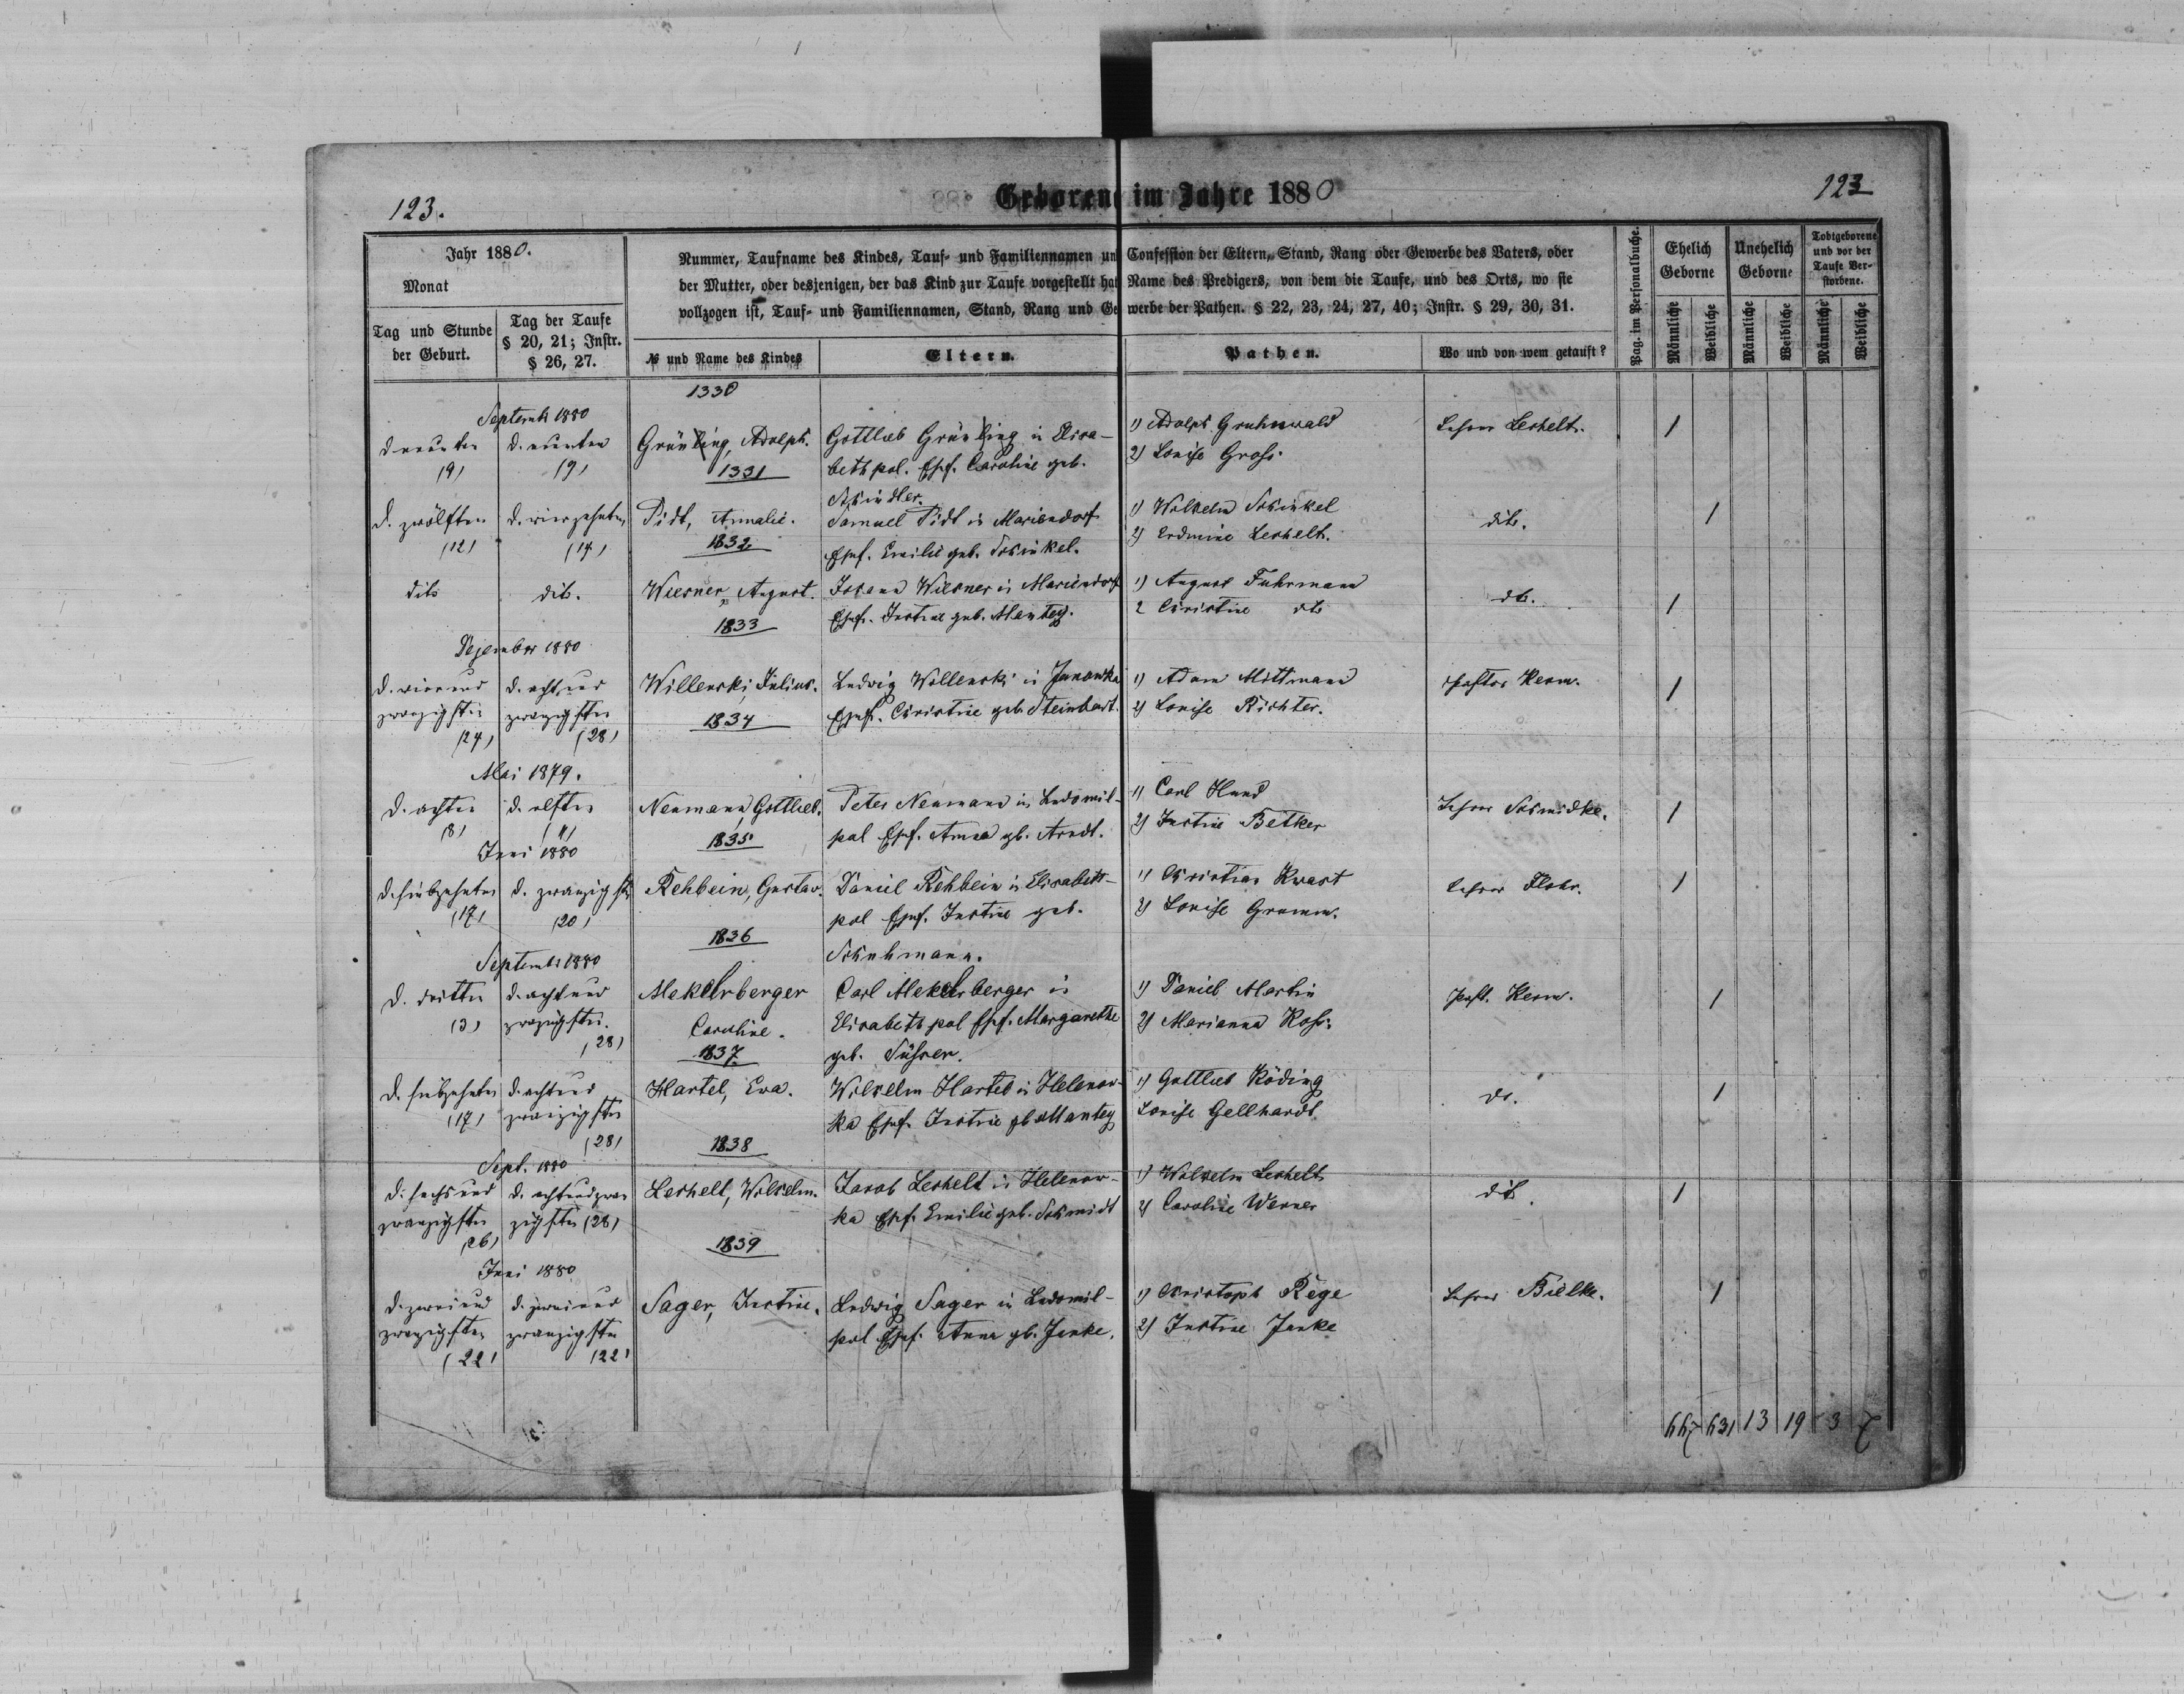 Geborene im Jahre 1880
123.
123
Jahr 1880.
Monat
Tag und Stunde
der Geburt.
Tag der Taufe
§ 20, 21; Instr.
§ 26, 27.
Nummer, Taufname des Kindes, Tauf- und Familiennamen und Confession der Eltern, Stand, Rang oder Gewerbe des Vaters, oder
der Mutter, oder desjenigen, der das Kind zur Taufe vorgestellt hat Name des Predigers, von dem die Taufe, und des Orts, wo sie
vollzogen ist, Tauf- und Familiennamen, Stand, Rang und Gewerbe der Pathen. § 22, 23, 24, 27, 40; Instr. § 29, 30, 31.
№ und Name des Kindes
Eltern.
Pathen.
Wo und von wem getauft?
Pag. im Personalbuche.
Ehelich
Geborne
Unehelich
Geborne
Todtgeborene
und vor der
Taufe Ver-
storbene.
Männliche
Weibliche
Männliche
Weibliche
Männliche
Weibliche
1330
Septemb 1880
d. neunten
(9)
d. neunten
(9)
Grünling, Adolph.
Gottlieb Grünling in Elisa-
bethpol. Ehef. Caroline geb.
Schindler.
1) Adolph Gruhnwald
2) Louise Gross.
Lehrer Leshelt.
1
1331
d. zwölften
(12)
d. vierzehnten
(14)
Pidt, Amalie.
Samuel Pidt in Mariendorf
Ehef. Emilie geb. Schinkel.
1) Wilhelm Schinkel
2) Erdmine Leshelt.
dito.
1
1832
dito
dito.
Wiesner, August.
Johann Wiesner in Mariendorf
Ehef. Justine geb. Mantey.
1) August Fuhrmann
2 Christine dto
dto.
1
1833
Dezember 1880
d. vierund
zwanzigsten
(24)
d. achtund
zwanzigsten
(28)
Willenski, Julius.
Ludwig Willenski in Janowka
Ehef. Christine geb. Steinhart.
1) Adam Mittmann
2) Louise Richter.
Pastor Kerm.
1
1834
Mai 1879.
d. achten
(8)
d. elften
(11)
Neumann, Gottlieb.
Peter Neumann in Ludomil-
pol Ehef. Anna gb. Arndt.
1) Carl Hund
2) Justine Betker
Lehrer Schmidke.
1
1835
Juni 1880
d. siebzehnten
(17)
d. zwanzigsten
(20)
Rehbein, Gustav.
Daniel Rehbein in Elisabeth-
pol Ehef. Justine geb.
Schuhmann.
1) Christian Kwast
2) Louise Gramm.
Lehrer Flohr.
1
1836
Septemb 1880
d. dritten
(3)
d. achtund
zwanzigsten.
(28)
Mekelrberger
Caroline.
Carl Mekelrberger in
Elisabethpol Ehef. Margarethe
geb. Führer.
1) Daniel Martin
2) Marianna Koss.
Past. Kerm.
1
1837
d. siebzehnten
(17)
d. achtund
zwanzigsten
(28)
Hartel, Eva.
Wilhelm Hartel in Helenow-
ka Ehef. Justine gb. Mantey
1) Gottlieb Röding
Louise Gellhardt.
do.
1
1838
Sept. 1880
d. sechsund
zwanzigsten
(26)
d. achtundzwan
zigsten (28)
Leshelt, Wilhelm.
Jacob Leshelt in Helenow-
ka Ehef. Emilie geb. Schmidt
1) Wilhelm Leshelt
2) Caroline Werner
dito.
1
1839
Juni 1880
d. zweiund
zwanzigsten
(22)
d. zweiund
zwanzigsten
(22)
Sager, Justine.
Ludwig Sager in Ludomil-
pol Ehef. Anna gb. Janke.
1) Christoph Rege
2) Justine Janke
Lehrer Bielke.
1
667 631 13 19 3 7